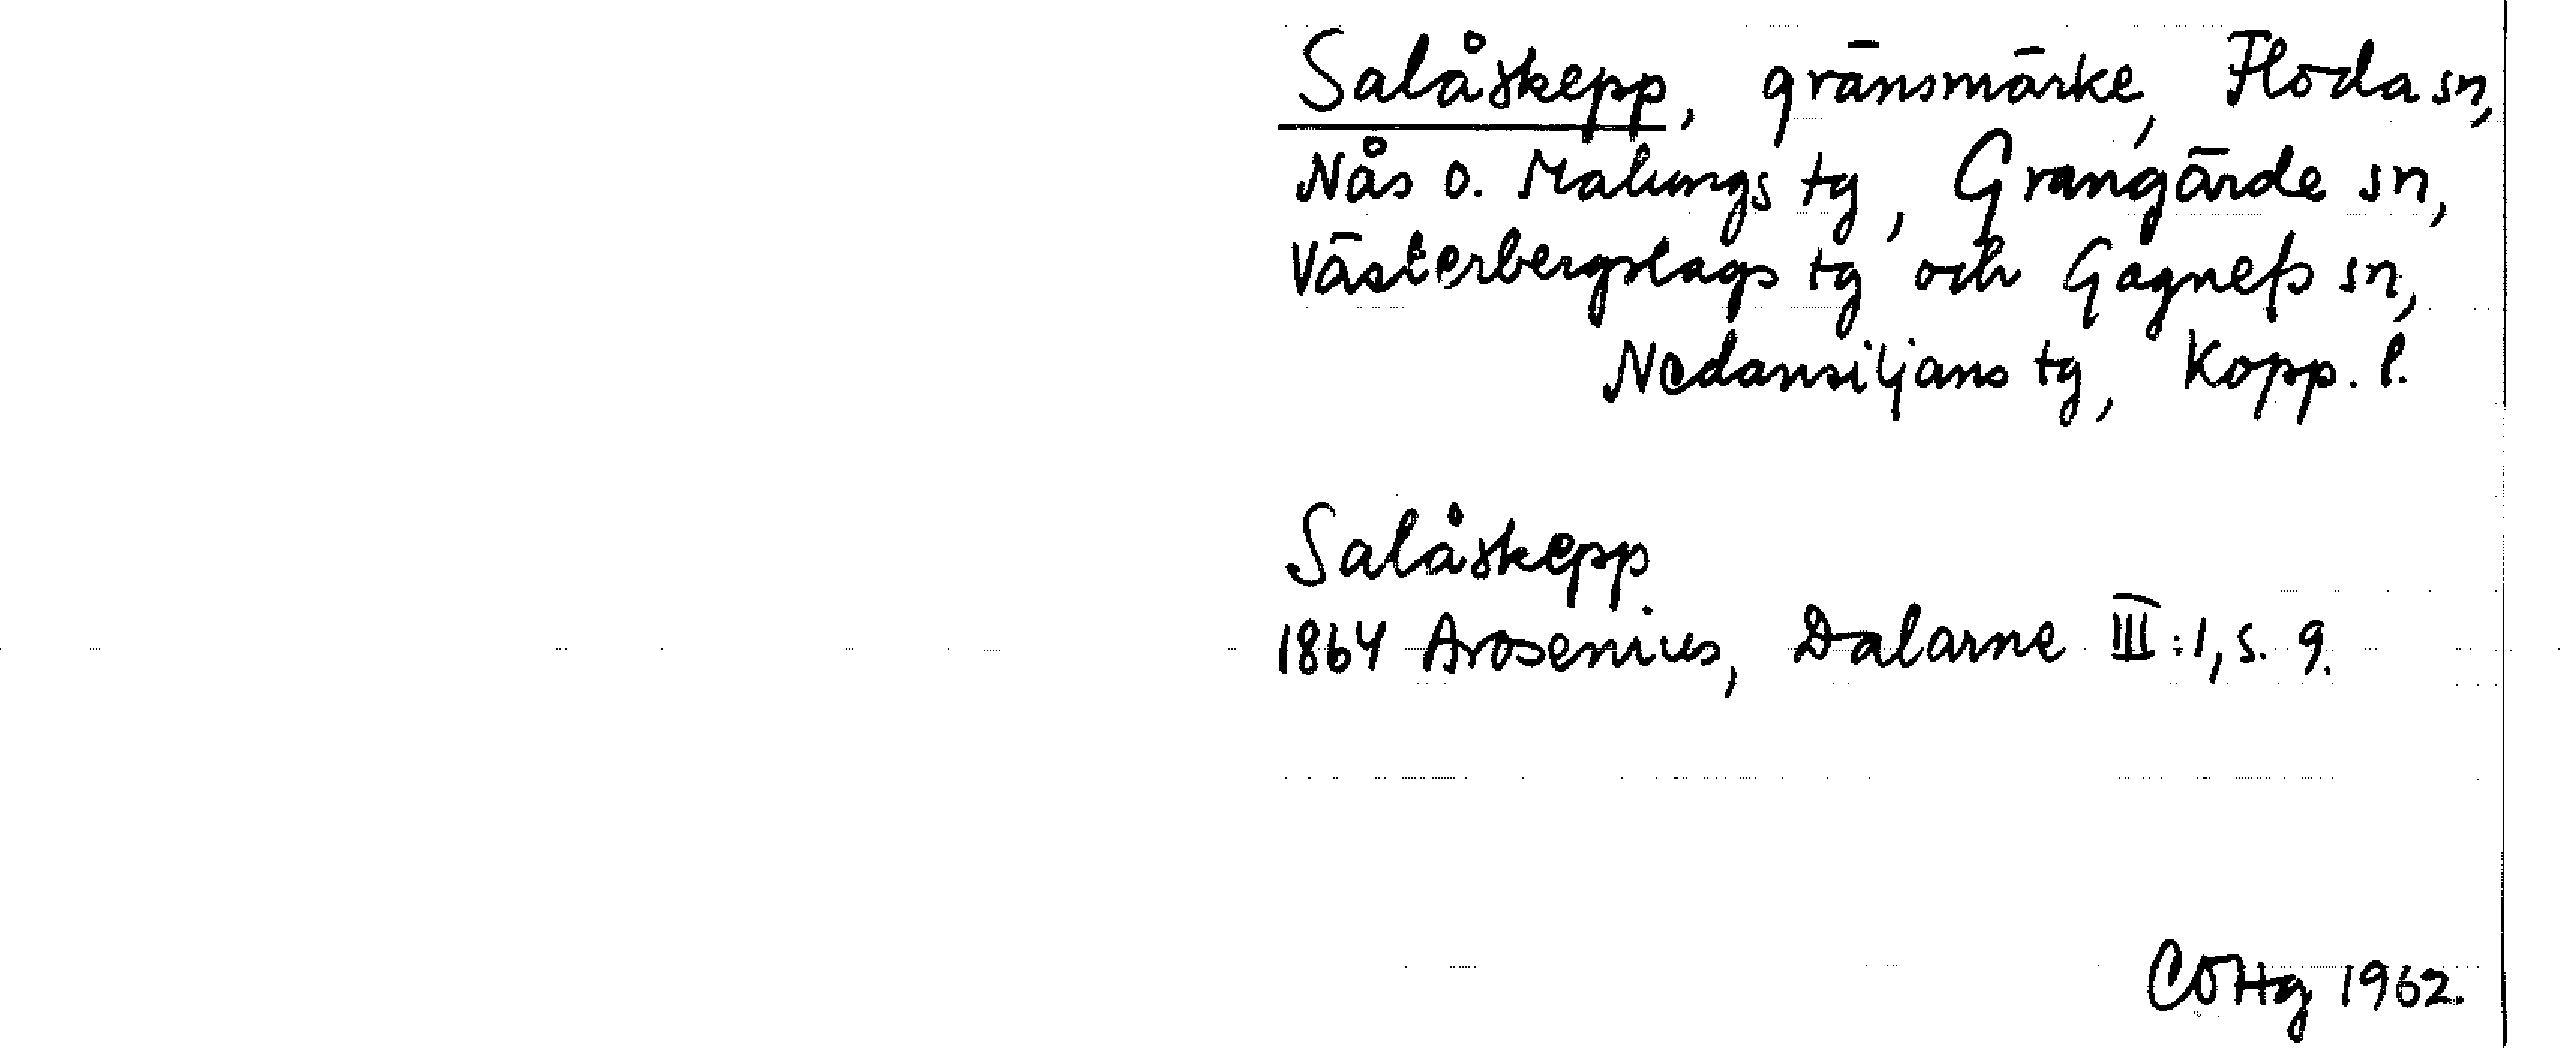 Salåskepp, gränsmärke, Floda sn,
Nås o. Malungs tg, Grangärde sn,
Västerbergslags tg och Gagnefs sn,
Nedansiljans tg, Kopp. l.
Salåskepp
1864 Arosenius, Dalarne III:1, s. 9.
COHg 1962.